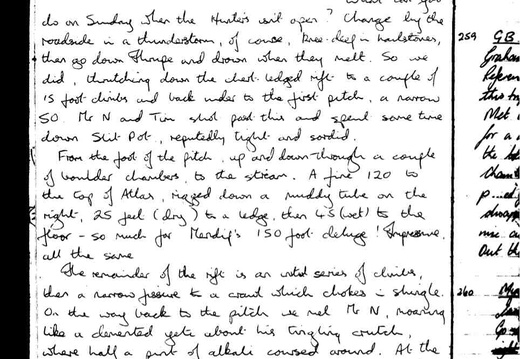 do on Sunday when the Hunters isn't open? Change by the
roadside in a thunderstorm, of course, knee-deep in hailstones,
then go down Thrupe and drown when they melt. So we
did, thrutching down the chert-ledged rift to a couple of
15 foot climbs and back under to the first pitch, a narrow
50. Mr N and Tim shot past this and spent some time
down Slit Pot, reputedly tight and sordid.
From the foot of the pitch, up and down through a couple
of boulder chambers to the stream. A fine 120 to
the top of Atlas, rigged down a muddy tube on the
right, 25 feet (dry) to a ledge, then 45 (wet) to the
floor - so much for Mendip's 150 foot deluge! Impressive,
all the same
The remainder of the rift is an series of climbs,
then a narrow fissure to a crawl which chokes in shingle.
On the way back to the pitch we met Mr N, moaning
like a demented yeti about his tingling crutch,
where half a pint of alkali coursed around. At the
259 GB
Graham
this
Met
for a
the
Cham
disapp
Out the
260